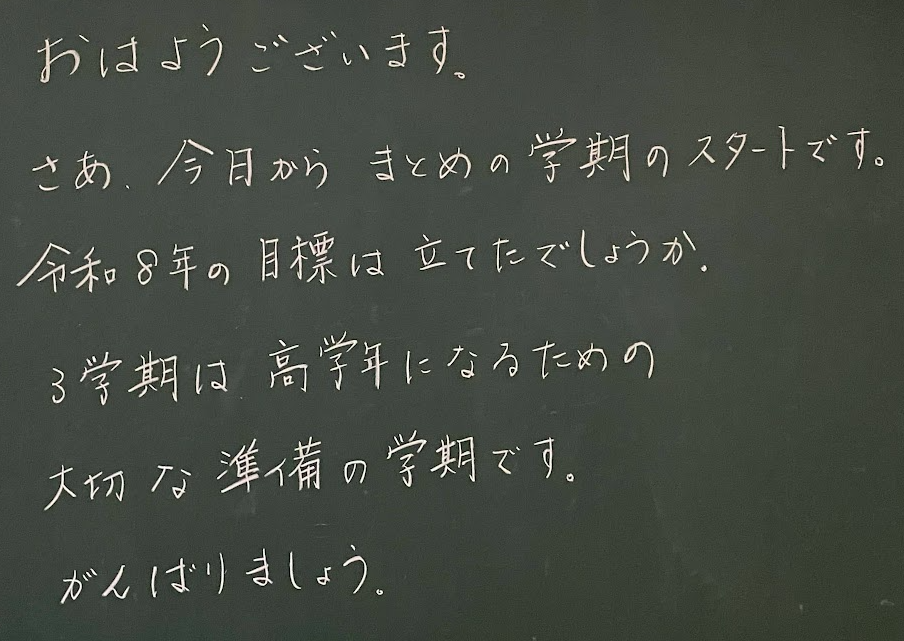 おはようございます。
さあ、今日から まとめの学期のスタートです。
令和8年の目標は 立てたでしょうか。
3学期は 高学年になるための
大切な準備の学期です。
がんばりましょう。